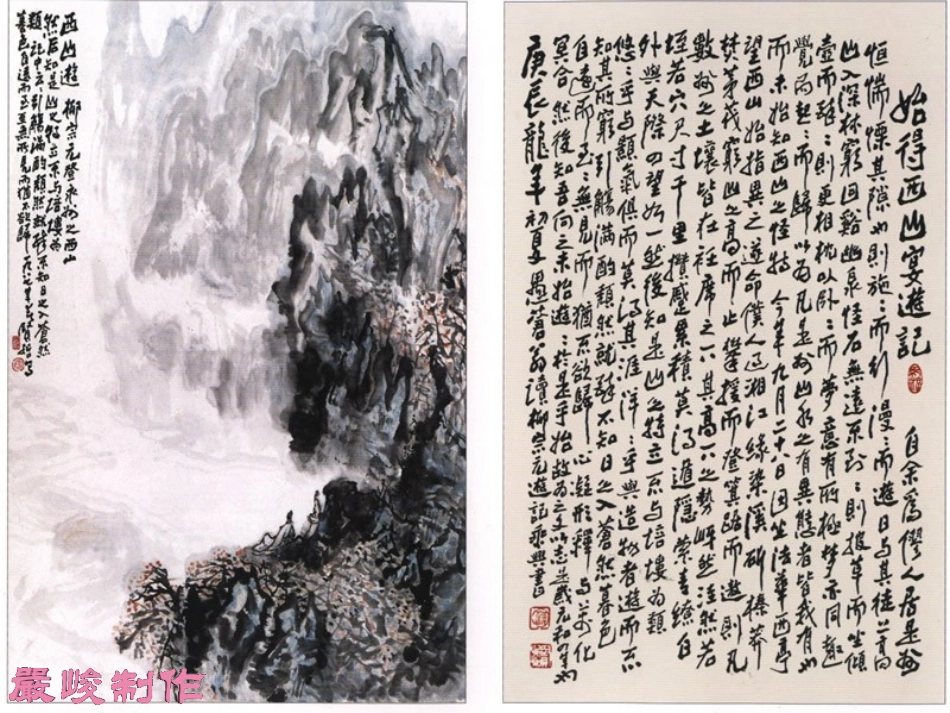 西山遊 柳宗元登永州之西山
然后知是山之特立不与培塿为
類記中云引觴满酌頹然就醉不知日之入蒼然
暮色自遠而至至無所見而猶不欲歸一九八七年
始得西山宴遊記 自余爲僇人居是州
恒惴慄其隙也則施〻而行漫〻而遊日与其徒上高
山入深林窮回谿幽泉怪石無遠不到〻則披草而坐傾
壺而醉〻則更相枕以卧〻而夢意有所極夢亦同趣
覺而起〻而歸以为凡是州山水之有異態者皆我有也
而未始知西山之怪特 今年九月二十八日因坐法華西亭
望西山始指異之遂命僕人過湘江緣染溪斫榛莽
焚茅茷窮山之高而止攀援而登箕踞而遨則凡
數州之土壤皆在衽席之下其高下之勢岈然洼然若
垤若穴尺寸千里攢蹙累積莫得遁隱縈青繚白
外與天際四望如一然後知是山之特立不与培塿为類
悠〻乎与顥氣俱而莫得其涯洋〻乎與造物者遊而不
知其所窮引觴满酌頹然就醉不知日之入蒼然暮色
自遠而至〻無見而猶不欲歸心凝形釋与萬化
冥合然後知吾向之未始遊〻於是乎始故为之文以志是歲元和四年也
庚辰龍年初夏愚蒼翁讀柳宗元遊記乘興書之
嚴峻制作